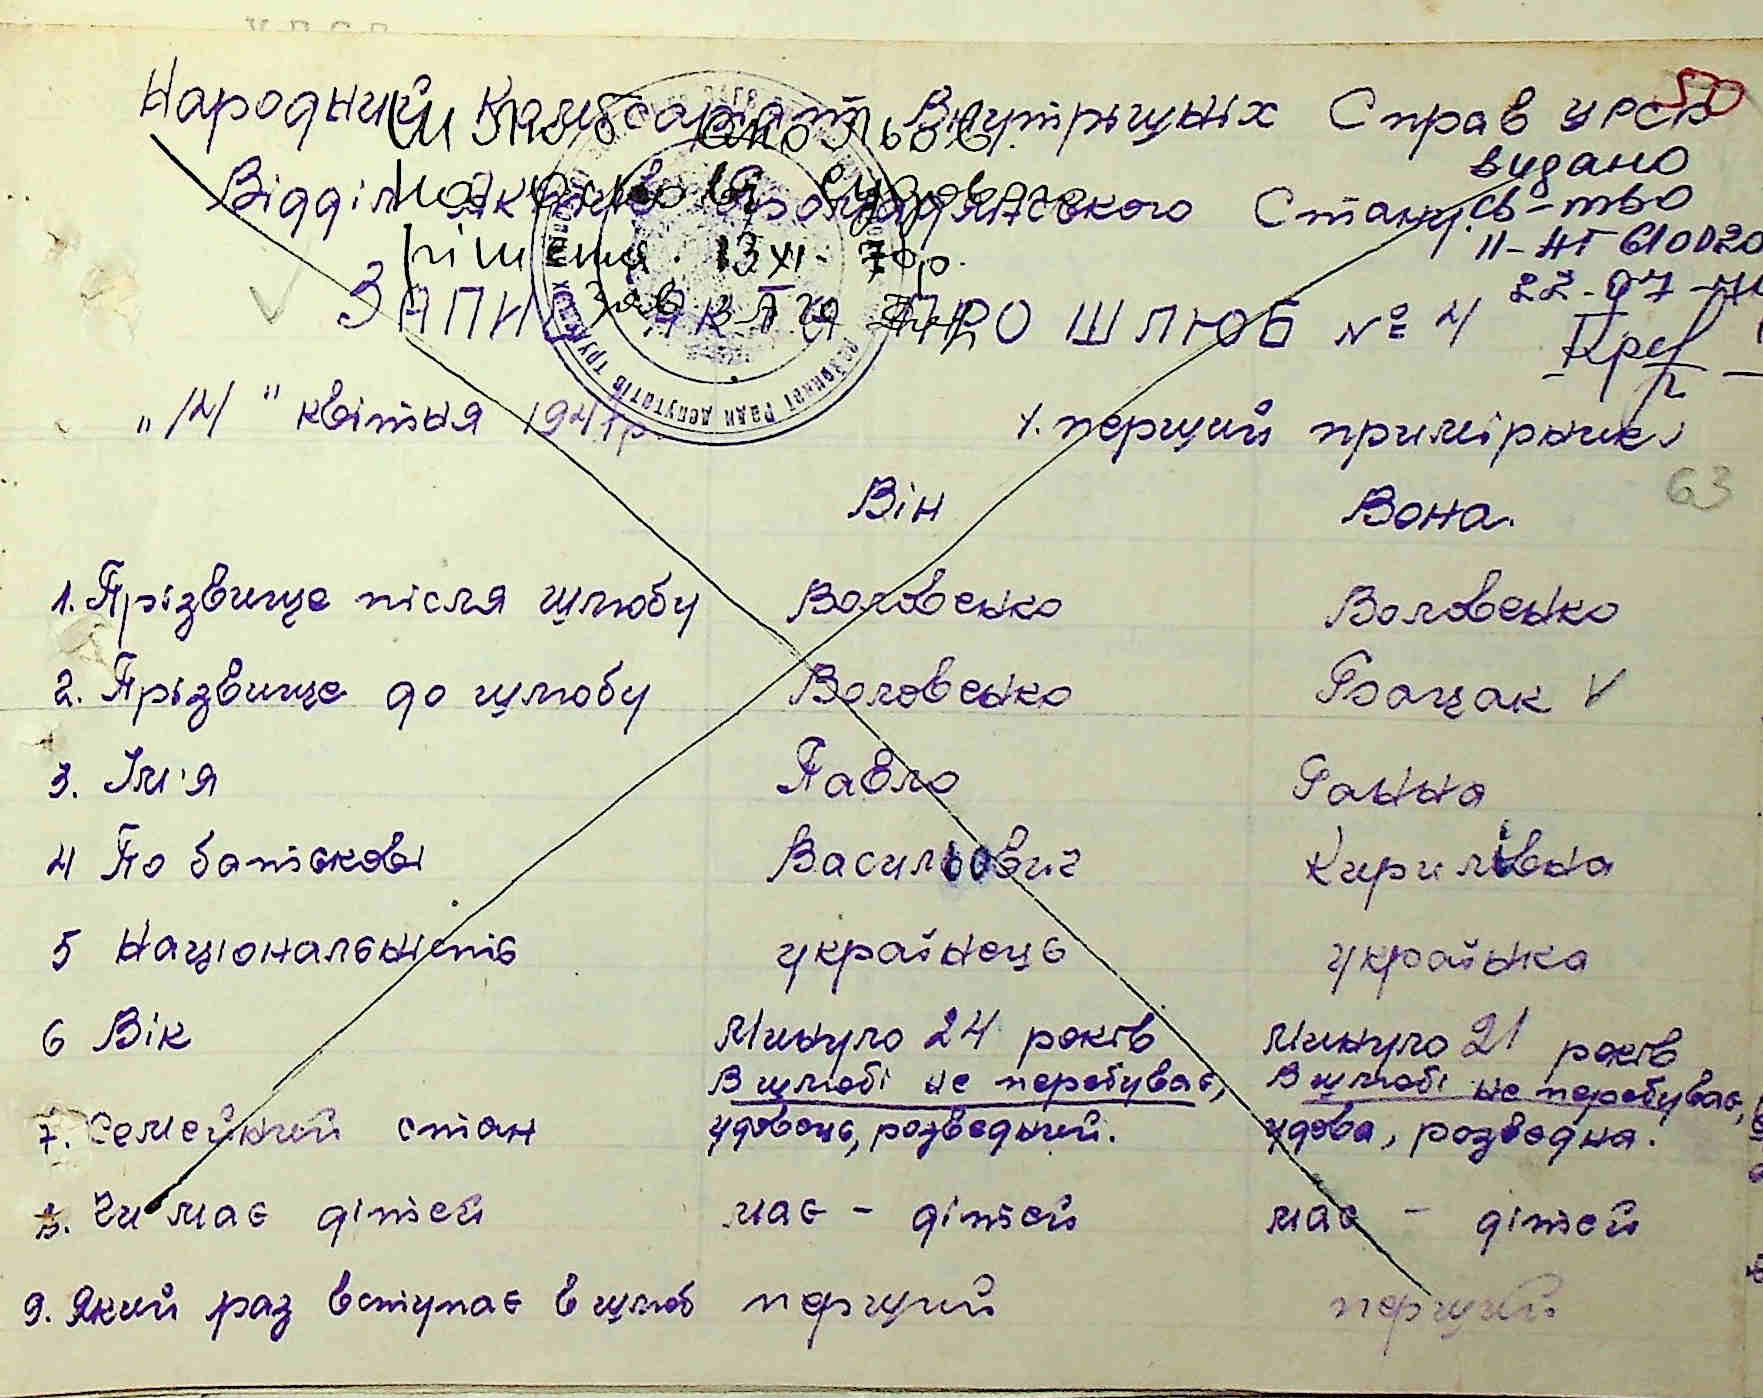 50
Народний Комісаріат Внутрішніх Справ УРСР
Відділ Актів Громадянського Стану.
видано
св-тво
II-НГ 610020
ЗАПИС АКТА ПРО ШЛЮБ № 4
рішення. 13 XI. 70р.
"14" квітня 1947р.
1. перший примірник
63
Він Вона.
1. Прізвище після шлюбу Воловенко Воловенко
2. Прізвище до шлюбу Воловенко Бацак V
3. Ім'я Павло Ганна
4 По батькові Васильович Кирилівна
5 Національність українець українка
6 Вік Минуло 24 років Минуло 21 років
7. Семейний стан В шлюбі не перебуває, удовець, розведний. В шлюбі не перебуває, удова, розведна.
8. Чи має дітей має - дітей має - дітей
9. Який раз вступає в шлюб перший перший